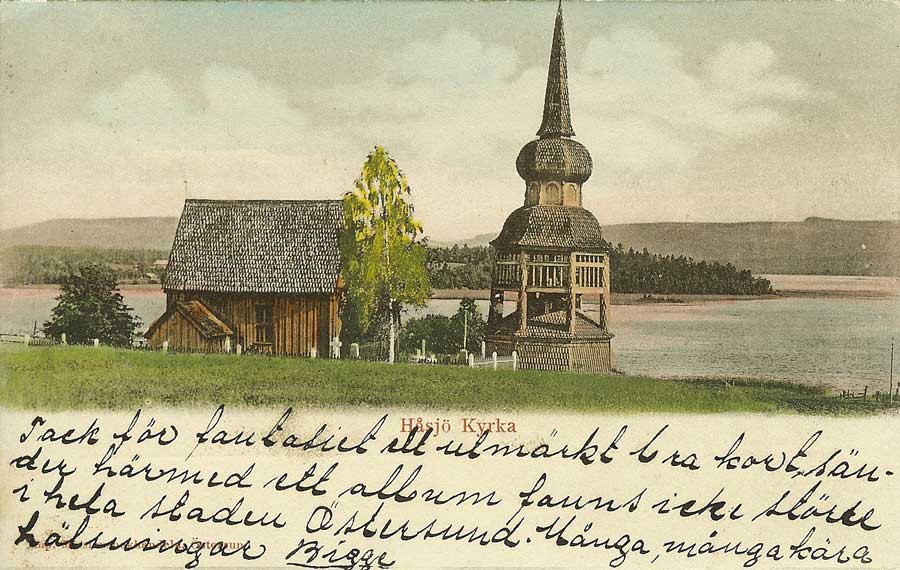 Håsjö Kyrka
Tack för fantasiet ett utmärkt bra kort, sän-
der härmed ett album fanns icke större
i hela staden Östersund. Många, många kära
hälsningar Bigge